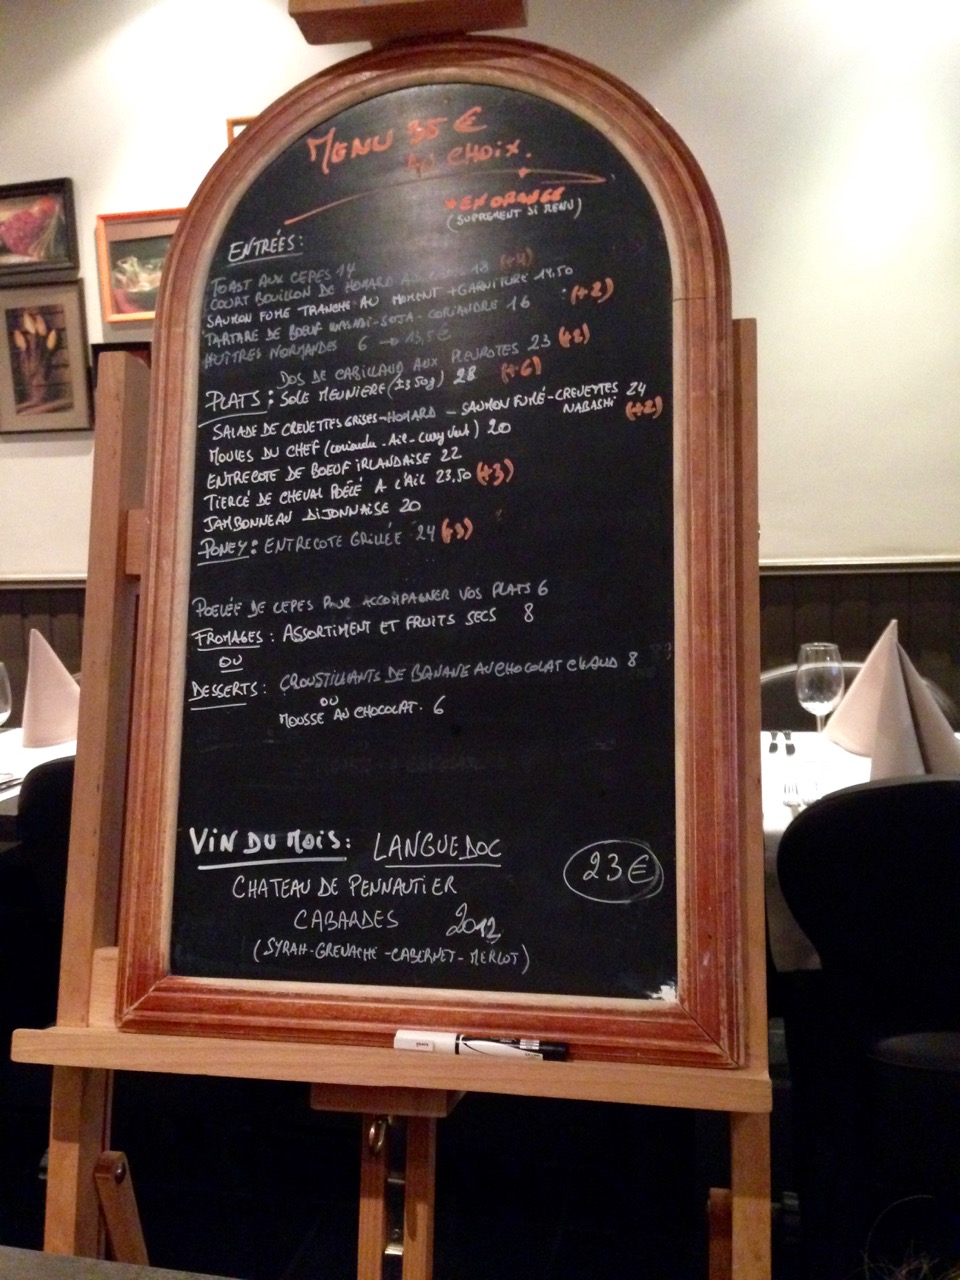 MENU 35 €
AU CHOIX.
* EN ORANGE
(SUPPLEMENT SI MENU)
ENTRÉES:
TOAST AUX CEPES 14
COURT BOUILLON DE HOMARD 18 (+4)
SAUMON FUMÉ TRANCHÉ AU MOMENT + GARNITURE 14.50
TARTARE DE BŒUF WASABI-SOJA-CORIANDRE 16 (+2)
HUÎTRES NORMANDES 6 → 13,5€
DOS DE CABILLAUD AUX PLEUROTES 23 (+2)
PLATS: SOLE MEUNIERE (±350g) 28 (+6)
SALADE DE CREVETTES GRISES-HOMARD - SAUMON FUMÉ-CREVETTES 24
NABASHI (+2)
MOULES DU CHEF (coriandre-Ail-Curry Vert) 20
ENTRECOTE DE BOEUF IRLANDAISE 22
TIERCÉ DE CHEVAL POÊLÉ A L'AIL 23,50 (+3)
JAMBONNEAU DIJONNAISE 20
PONEY: ENTRECOTE GRILLÉE 24 (+3)
POELÉE DE CEPES POUR ACCOMPAGNER VOS PLATS 6
FROMAGES: ASSORTIMENT ET FRUITS SECS 8
OU
DESSERTS: CROUSTILLANTS DE BANANE AU CHOCOLAT CHAUD 8
OU
MOUSSE AU CHOCOLAT. 6
VIN DU MOIS: LANGUEDOC
23€
CHATEAU DE PENNAUTIER
CABARDES 2012
(SYRAH-GRENACHE-CABERNET-MERLOT)